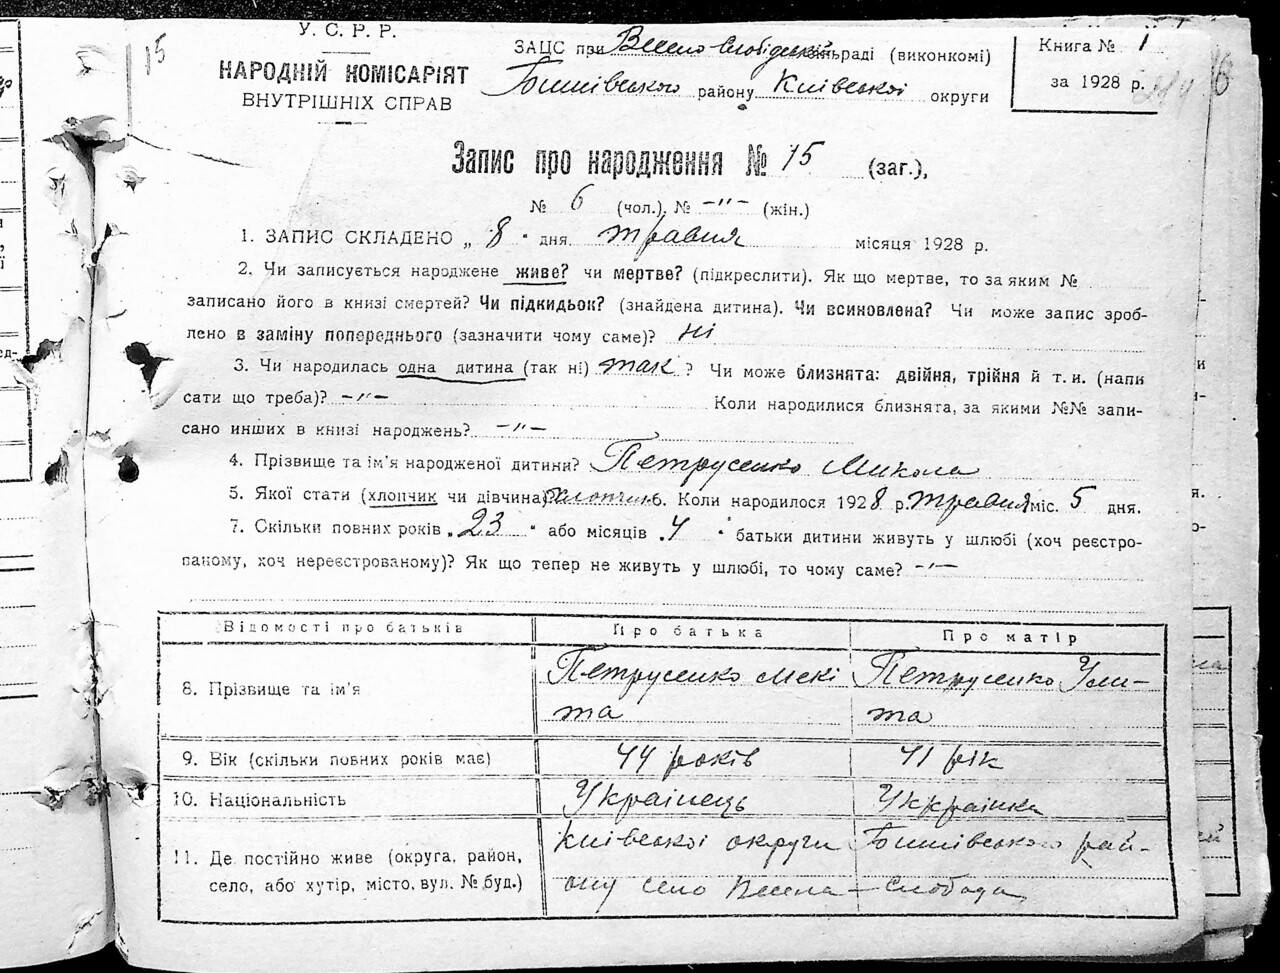 15
У. С. Р. Р.
НАРОДНІЙ КОМІСАРІЯТ
ВНУТРІШНІХ СПРАВ
ЗАЦС при Весело-Слобідській сільраді (виконкомі)
району Київської округи
Книга № 1
за 1928 р.
Запис про народження № 15 (заг.),
№ 6 (чол.), № –"– (жін.)
1. ЗАПИС СКЛАДЕНО „ 8 " дня травня місяця 1928 р.
2. Чи записується народжене живе? чи мертве? (підкреслити). Як що мертве, то за яким №
записано його в книзі смертей? Чи підкидьок? (знайдена дитина). Чи всиновлена? Чи може запис зроб-
лено в заміну попереднього (зазначити чому саме)? ні
3. Чи народилась одна дитина (так ні) так ? Чи може близнята: двійня, трійня й т. и. (напи
сати що треба)? –"– Коли народилися близнята, за якими №№ запи-
сано инших в книзі народжень? –"–
4. Прізвище та ім'я народженої дитини? Петрусенко Микола
5. Якої стати (хлопчик чи дівчина) хлопчик 6. Коли народилося 1928 р. травня міс. 5 дня.
7. Скільки повних років „ 23 " або місяців „ 4 " батьки дитини живуть у шлюбі (хоч реєстро-
ваному, хоч нереєстрованому)? Як що тепер не живуть у шлюбі, то чому саме? –"–
Відомості про батьків Про батька Про матір
8. Прізвище та ім'я Петрусенко Мекі Петрусенко Ули-
та та
9. Вік (скільки повних років має) 44 років 41 рік
10. Національність Українець Украрінка
11. Де постійно живе (округа, район, Київської округи рай-
село, або хутір, місто, вул. № буд.) ону село Весела-Слобода